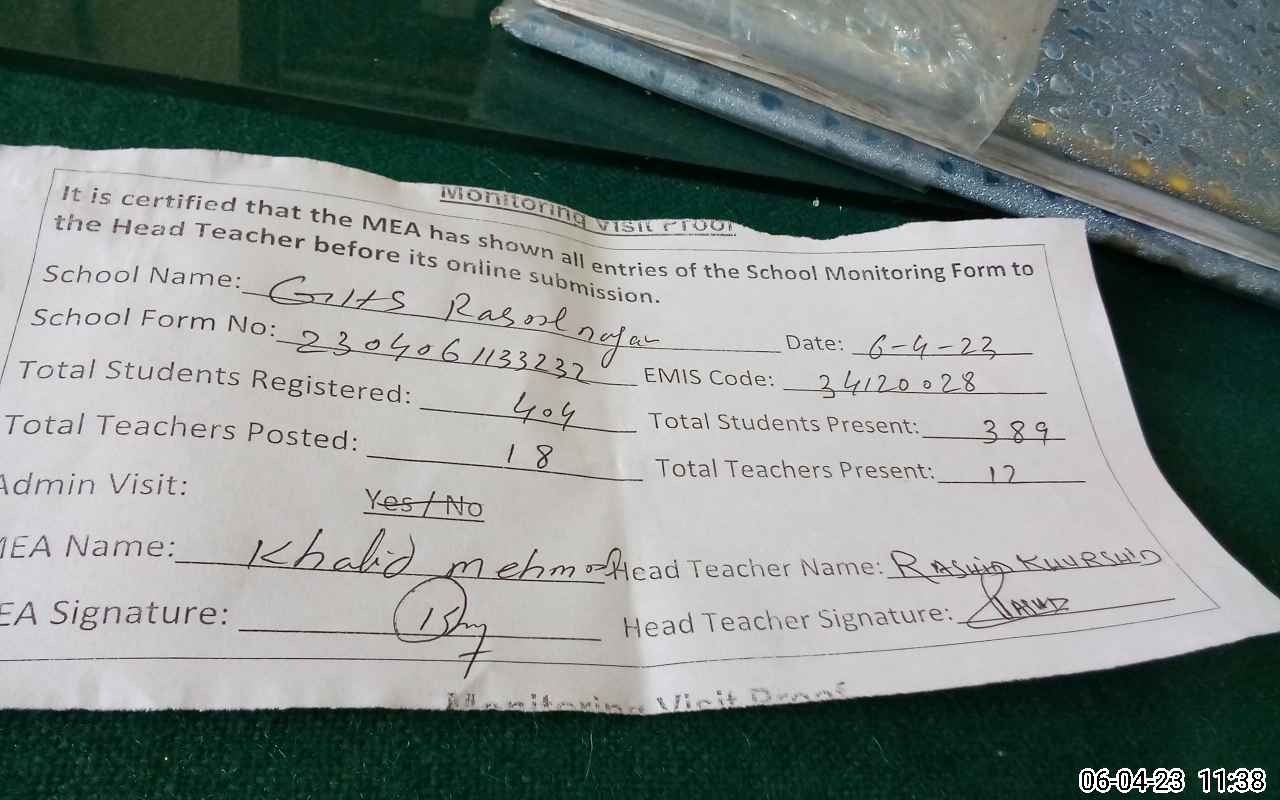 Monitoring Visit Proof
It is certified that the MEA has shown all entries of the School Monitoring Form to
the Head Teacher before its online submission.
School Name: GHS Rasool nagar
Date: 6-4-23
School Form No: 2304061133232
EMIS Code: 34120028
Total Students Registered: 404
Total Students Present: 389
Total Teachers Posted: 18
Total Teachers Present: 12
Admin Visit: Yes / No
MEA Name: Khalid mehmood
Head Teacher Name: RASHID KHURSHID
EA Signature:
Head Teacher Signature:
Monitoring Visit Proof
06-04-23 11:38